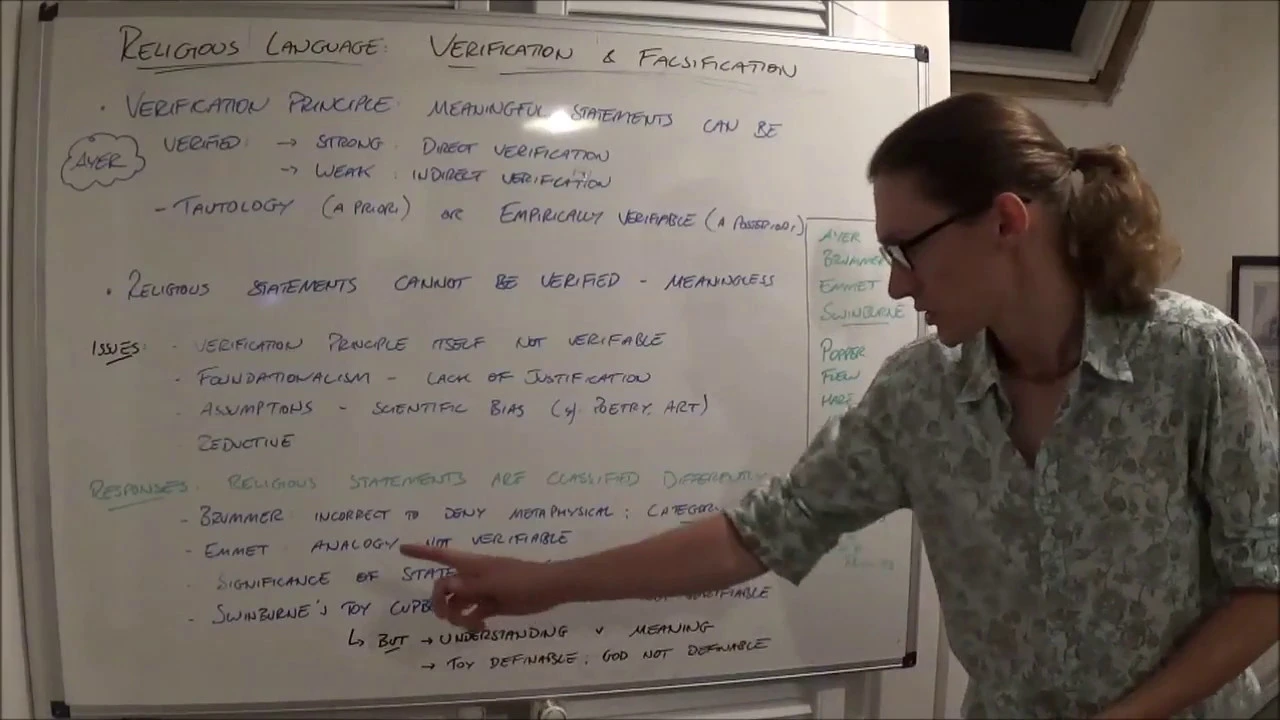 RELIGIOUS LANGUAGE: VERIFICATION & FALSIFICATION
• VERIFICATION PRINCIPLE: MEANINGFUL STATEMENTS CAN BE
AYER
VERIFIED: → STRONG: DIRECT VERIFICATION
→ WEAK: INDIRECT VERIFICATION
- TAUTOLOGY (A PRIORI) OR EMPIRICALLY VERIFIABLE (A POSTERIORI)
• RELIGIOUS STATEMENTS CANNOT BE VERIFIED - MEANINGLESS
ISSUES: - VERIFICATION PRINCIPLE ITSELF NOT VERIFIABLE
- FOUNDATIONALISM - LACK OF JUSTIFICATION
- ASSUMPTIONS - SCIENTIFIC BIAS POETRY, ART)
REDUCTIVE
RESPONSES: RELIGIOUS STATEMENTS ARE CLASSIFIED DIFFERENTLY
- BRUMMER INCORRECT TO DENY METAPHYSICAL:
- EMMET: ANALOGY NOT VERIFIABLE
- SIGNIFICANCE OF
- SWINBURNE'S TOY NOT VERIFIABLE
↳ BUT → UNDERSTANDING v MEANING
→ TOY DEFINABLE: GOD NOT DEFINABLE
AYER
BRUMMER
EMMET
SWINBURNE
POPPER
FLEW
HARE